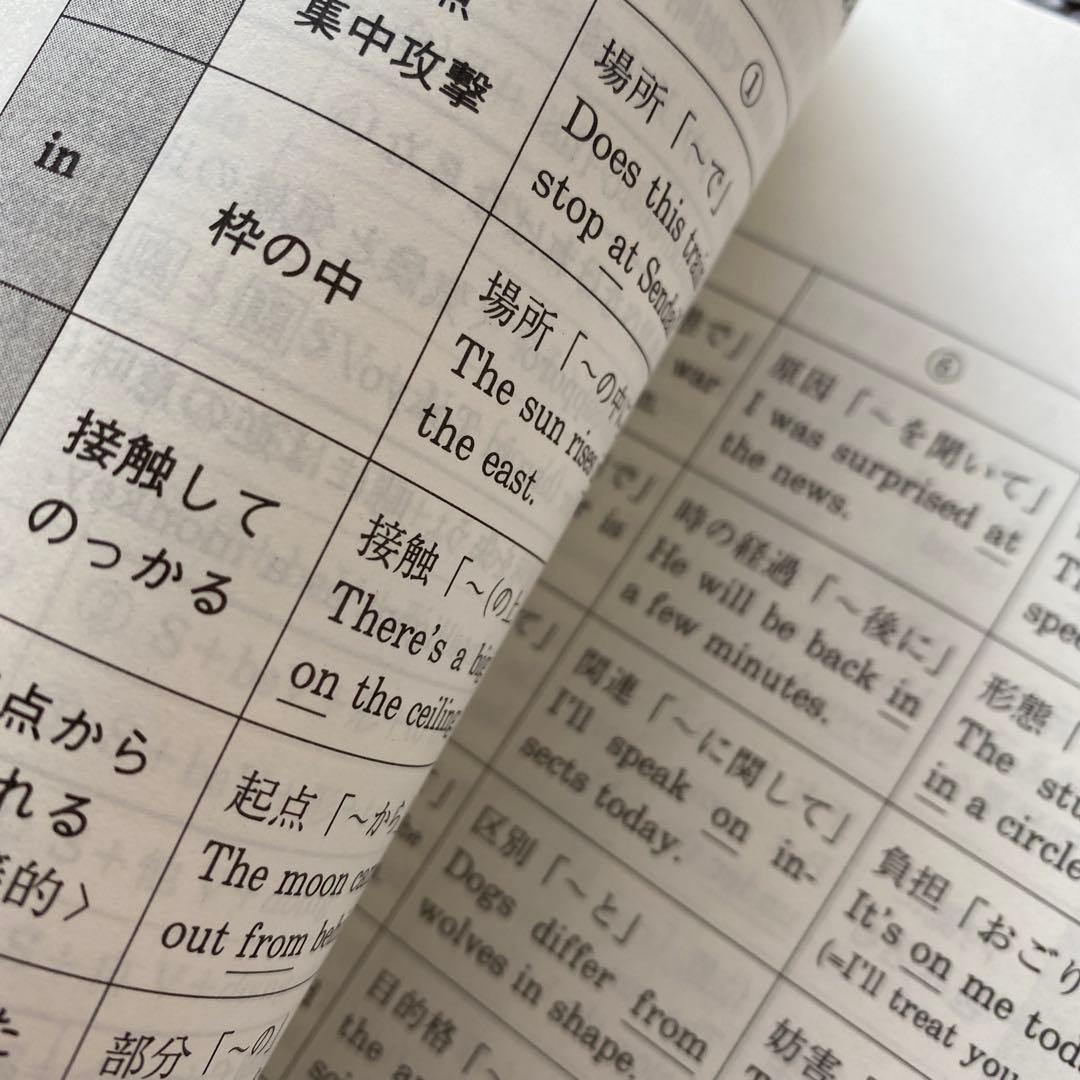 点
集中攻撃
①
場所「~で」
Does this
stop at
in
枠の中
場所「~の中
The sun rises
the east.
接触して
のっかる
接触「~(の上
There's a
on the ceiling
点から
れる
的〉
起点「~から
The moon
out from
部分「~の
で」
war
⑥
原因「~を聞いて」
I was surprised at
the news.
で」
is
時の経過「~後に」
He will be back in
a few minutes.
て」
関連「~に関して」
I'll speak on in-
sects today.
」
区別「~と」
Dogs differ from
wolves in shape.
目的格「~
the
形態「
The
in a circle
負担「おごり
It's on me
(=I'll treat you
妨害